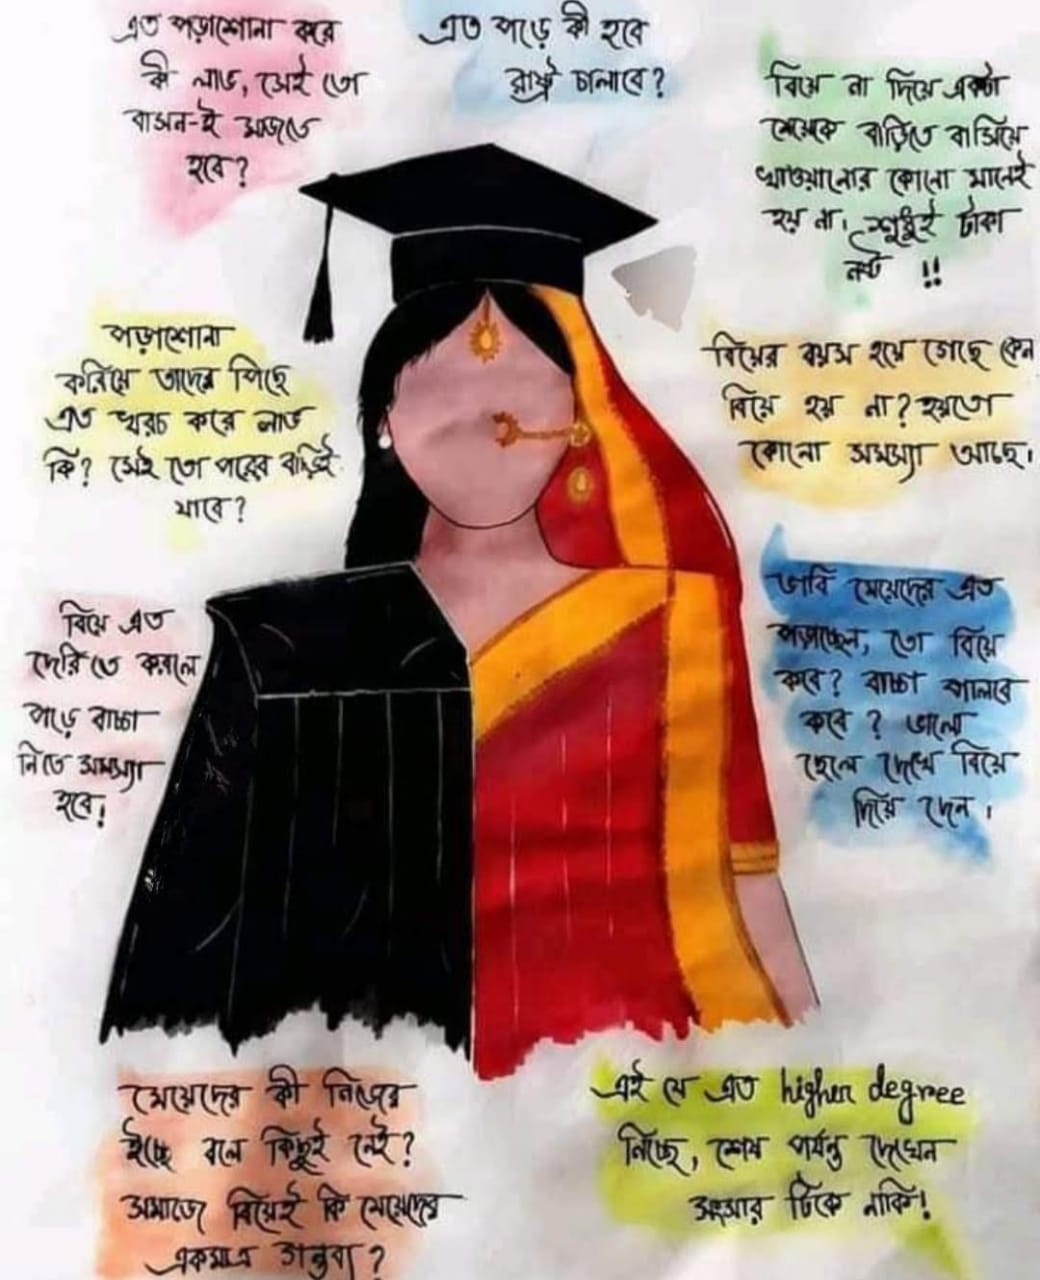 এত পড়াশোনা করে
কী লাভ, সেই তো
বাসন-ই মাজতে
হবে?
এত পড়ে কী হবে
রাষ্ট্র চালাবে?
বিয়ে না দিয়ে একটা
মেয়েকে বাড়িতে বসিয়ে
খাওয়ানোর কোনো মানেই
হয় না। শুধুই টাকা
নষ্ট !!
পড়াশোনা
করিয়ে তাদের পিছে
এত খরচ করে লাভ
কি? সেই তো পরের বাড়িই
যাবে?
বিয়ের বয়স হয়ে গেছে কেন
বিয়ে হয় না? হয়তো
কোনো সমস্যা আছে।
বিয়ে এত
দেরিতে করলে
পড়ে বাচ্চা
নিতে সমস্যা
হবে!
ভাবি মেয়েদের এত
পড়াচ্ছেন, তো বিয়ে
কবে? বাচ্চা পালবে
কবে? ভালো
ছেলে দেখে বিয়ে
দিয়ে দেন।
মেয়েদের কী নিজের
ইচ্ছে বলে কিছুই নেই?
সমাজে বিয়েই কি মেয়েদের
একমাত্র গন্তব্য?
এই যে এত higher degree
নিচ্ছে, শেষ পর্যন্ত দেখেন
সংসার টিকে নাকি!